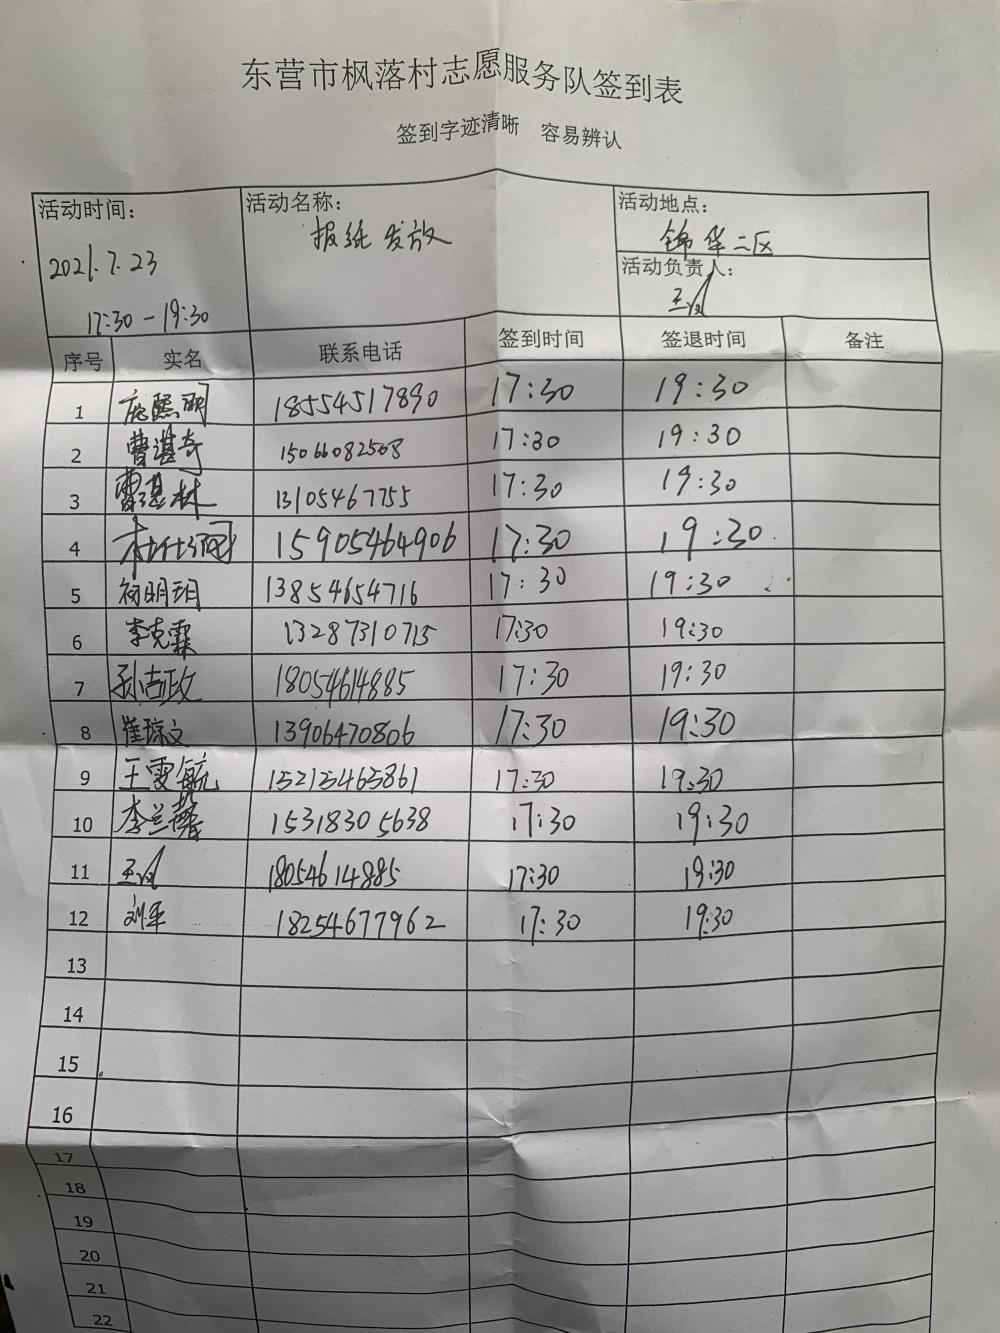 东营市枫落村志愿服务队签到表
签到字迹清晰 容易辨认
活动时间： 活动名称： 活动地点：
报纸发放 锦华二区
2021.7.23 活动负责人：
17:30-19:30
序号 实名 联系电话 签到时间 签退时间 备注
1 18554517890 17:30 19:30
2 曹湛奇 15066082508 17:30 19:30
3 曹湛林 13105467755 17:30 19:30
4 15905464906 17:30 19:30
5 祠明玥 13854654716 17:30 19:30
6 李克霖 13287310715 17:30 19:30
7 孙吉政 18054614885 17:30 19:30
8 崔琼文 13906470806 17:30 19:30
9 王雯航 15215465861 17:30 19:30
10 李兰馨 15318305638 17:30 19:30
11 18054614885 17:30 19:30
12 刘平 18254677962 17:30 19:30
13
14
15
16
17
18
19
20
21
22